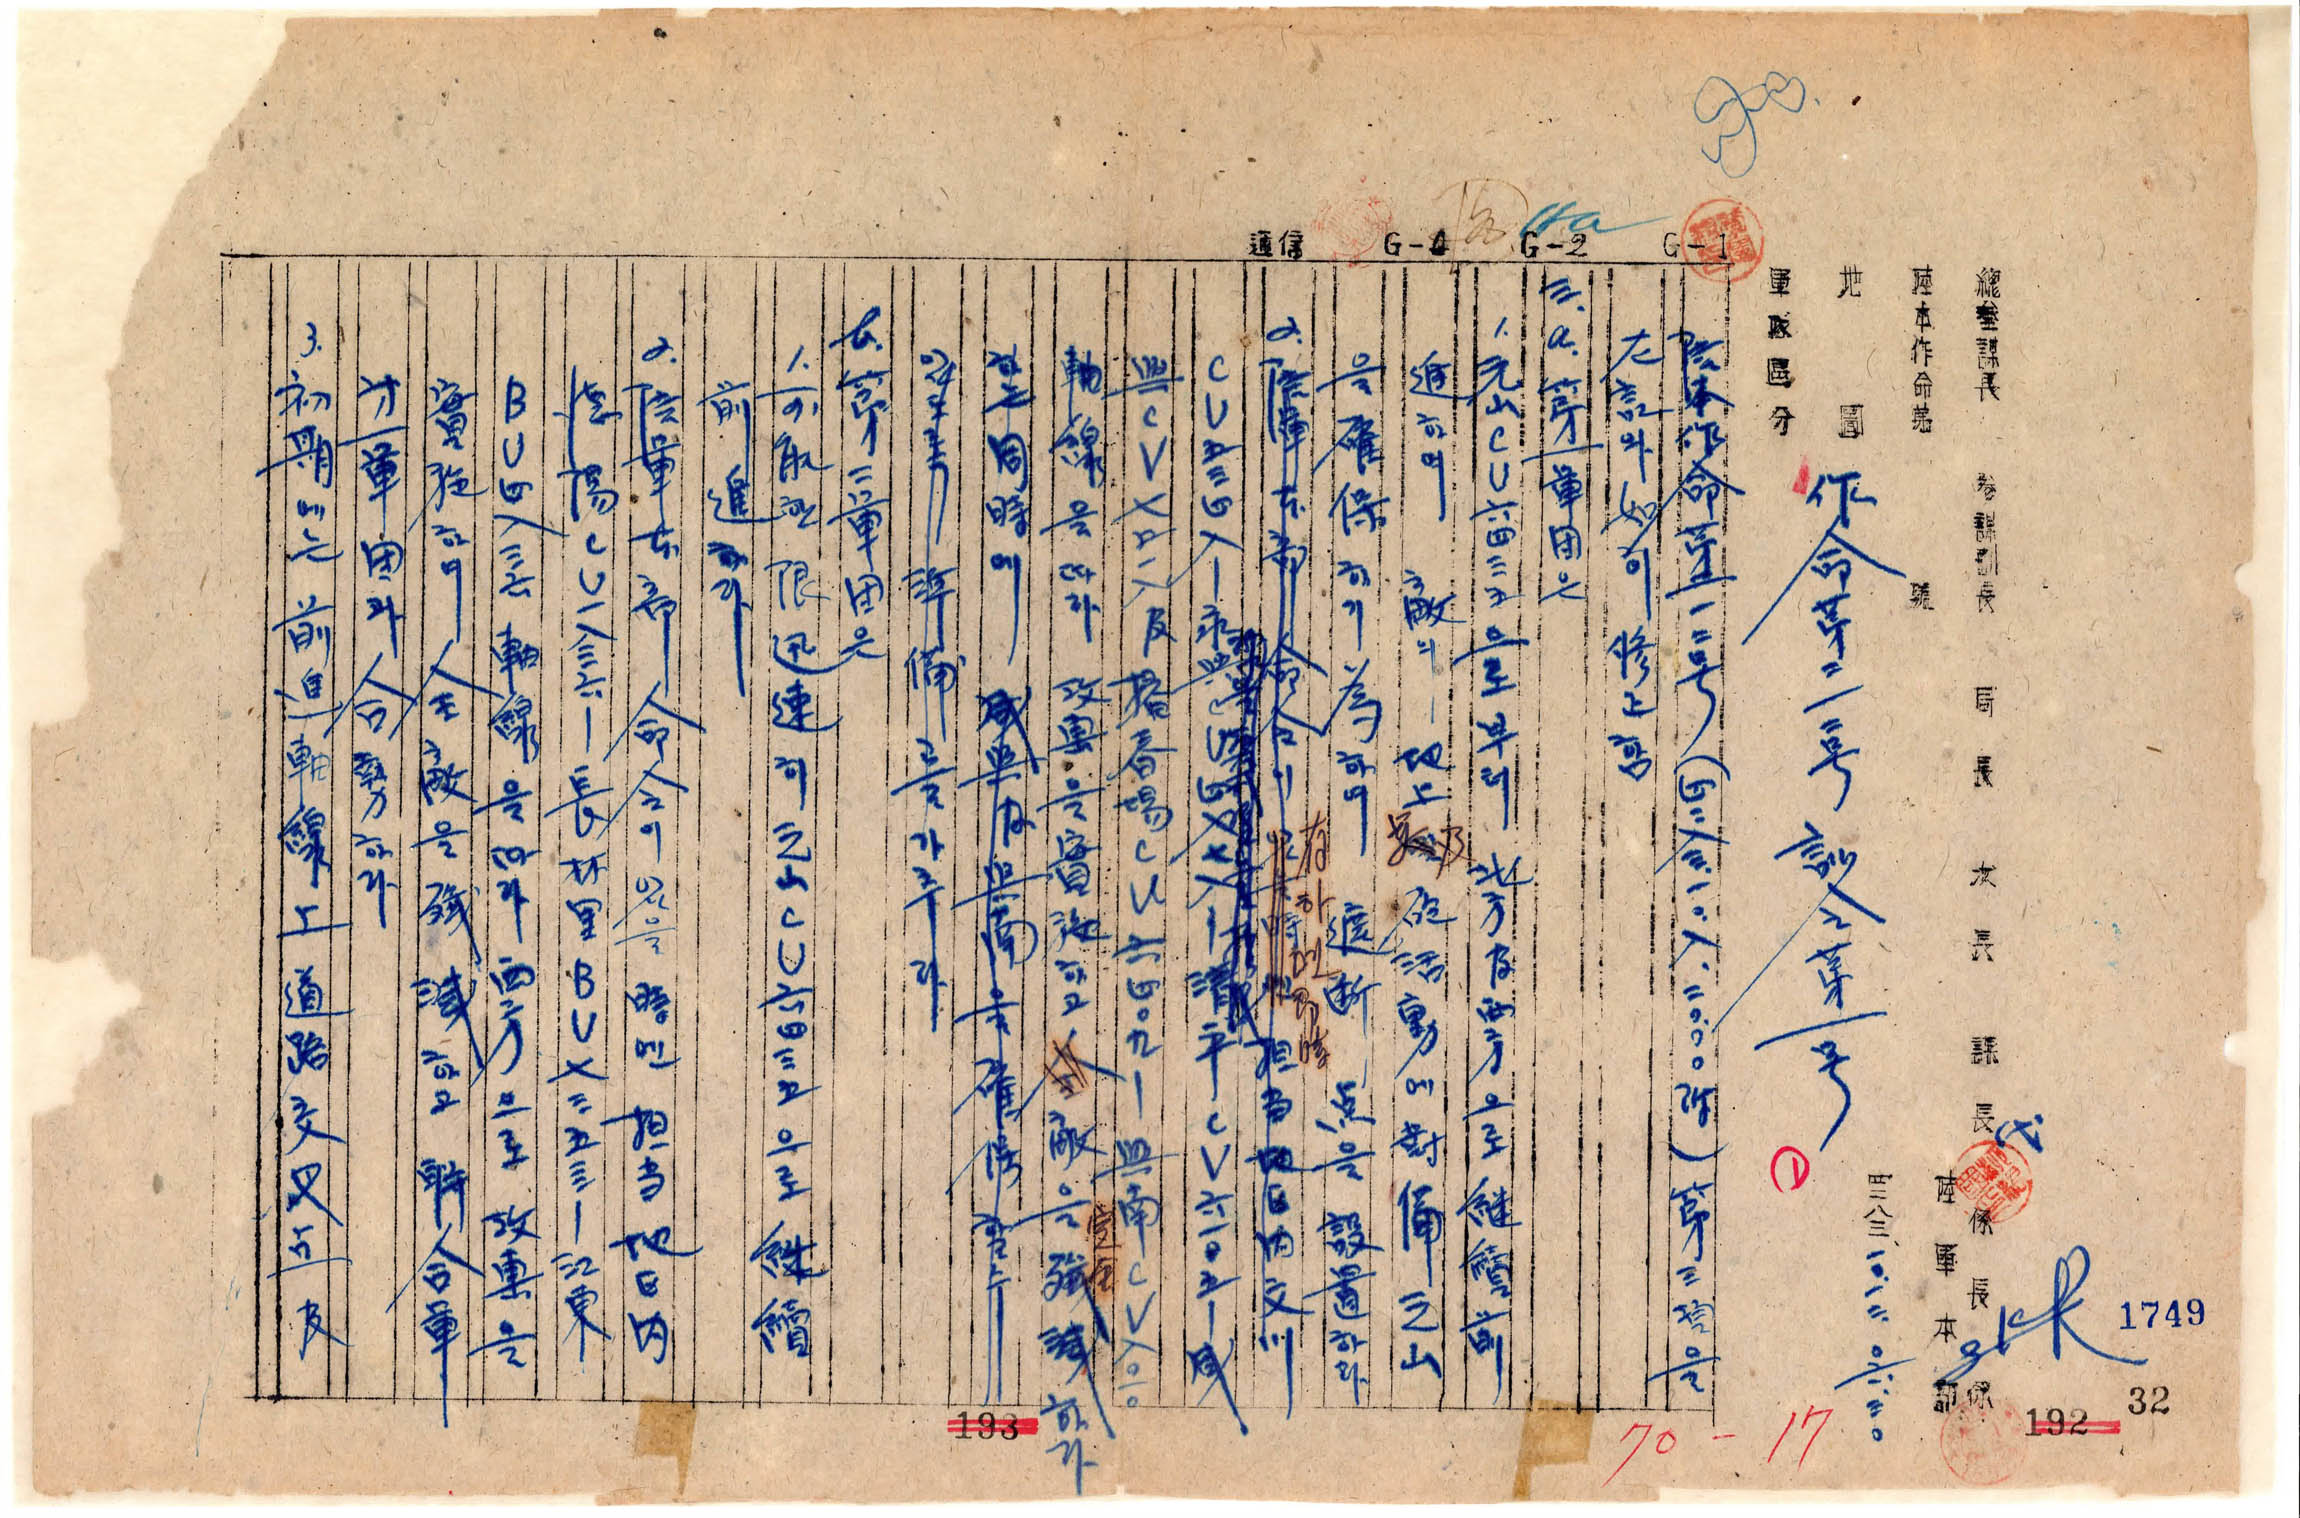 總參謀長 參謀副長 局長 次長 課長 代 係長 係
陸本作命第 號 陸軍本部
地圖
軍隊區分
四二八三、一〇、一二
作命第二一二号 訓令第一号
①
通信 G-4 G-2 G-1
陸本作命第二一二号(四二八三.一〇.八.二〇:〇〇 第三項을
左記와 如히 修正함
三. a. 第一軍団은
1. 元山CU六四三五으로부터 北方及西方으로 継續前
進하며 敵의 地上及 砲活動에 對備 元山
을 確保하기 為하여 遮断点을 設置하라
2. 陸軍本部命令이 有하면 即時 担当地区内 文川
CU五三四八-永興CU四八X八-清平CV六一〇五-咸
興CVX六二八及 挿春場CU六四〇九-興南CV八〇〇
軸線을 따라 攻擊을 實施하고 敵을 完全 殲滅하라
하는 同時에 咸興及興南을 確保할수
있도록 準備를가추라
b. 第二軍団은
1. 可能한限 迅速히 元山CU六四三五으로 継續
前進하라
2. 陸軍本部 命令이 있을時엔 担当地区内
淮陽CU一八三六-長林里BUX二五三-江東
BU四八三六 軸線을따라 西方으로 攻擊을
實施하며 全敵을 殲滅하고 聯合軍
第一軍団과 合勢하라
3. 初期에는 前進軸線上 道路交叉点及
1749
32
192
193
70-17